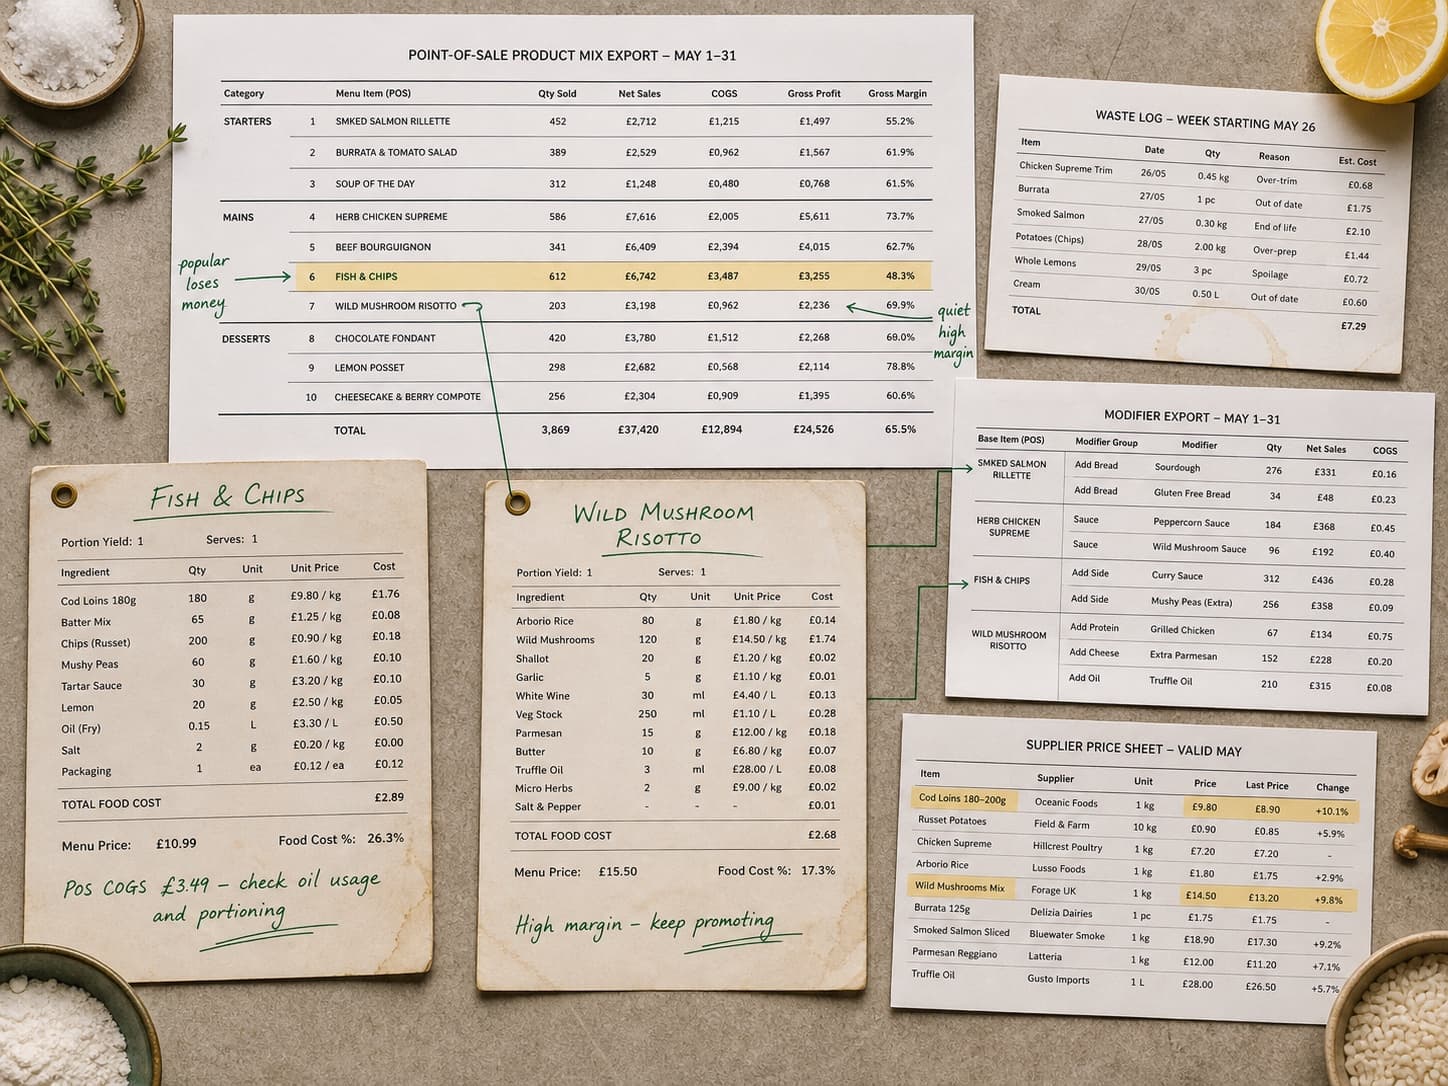 POINT-OF-SALE PRODUCT MIX EXPORT – MAY 1–31
Category Menu Item (POS) Qty Sold Net Sales COGS Gross Profit Gross Margin
STARTERS 1 SMKED SALMON RILLETTE 452 £2,712 £1,215 £1,497 55.2%
2 BURRATA & TOMATO SALAD 389 £2,529 £0,962 £1,567 61.9%
3 SOUP OF THE DAY 312 £1,248 £0,480 £0,768 61.5%
MAINS 4 HERB CHICKEN SUPREME 586 £7,616 £2,005 £5,611 73.7%
5 BEEF BOURGUIGNON 341 £6,409 £2,394 £4,015 62.7%
6 FISH & CHIPS 612 £6,742 £3,487 £3,255 48.3%
7 WILD MUSHROOM RISOTTO 203 £3,198 £0,962 £2,236 69.9%
DESSERTS 8 CHOCOLATE FONDANT 420 £3,780 £1,512 £2,268 60.0%
9 LEMON POSSET 298 £2,682 £0,568 £2,114 78.8%
10 CHEESECAKE & BERRY COMPOTE 256 £2,304 £0,909 £1,395 60.6%
TOTAL 3,869 £37,420 £12,894 £24,526 65.5%
popular
loses
money
quiet
high
margin
WASTE LOG – WEEK STARTING MAY 26
Item Date Qty Reason Est. Cost
Chicken Supreme Trim 26/05 0.45 kg Over-trim £0.68
Burrata 27/05 1 pc Out of date £1.75
Smoked Salmon 27/05 0.30 kg End of life £2.10
Potatoes (Chips) 28/05 2.00 kg Over-prep £1.44
Whole Lemons 29/05 3 pc Spoilage £0.72
Cream 30/05 0.50 L Out of date £0.60
TOTAL £7.29
MODIFIER EXPORT – MAY 1–31
Base Item (POS) Modifier Group Modifier Qty Net Sales COGS
SMKED SALMON
RILLETTE
Add Bread Sourdough 276 £331 £0.16
Add Bread Gluten Free Bread 34 £48 £0.23
HERB CHICKEN
SUPREME
Sauce Peppercorn Sauce 184 £368 £0.45
Sauce Wild Mushroom Sauce 96 £192 £0.40
FISH & CHIPS
Add Side Curry Sauce 312 £436 £0.28
Add Side Mushy Peas (Extra) 256 £358 £0.09
WILD MUSHROOM
RISOTTO
Add Protein Grilled Chicken 67 £134 £0.75
Add Cheese Extra Parmesan 152 £228 £0.20
Add Oil Truffle Oil 210 £315 £0.08
FISH & CHIPS
Portion Yield: 1 Serves: 1
Ingredient Qty Unit Unit Price Cost
Cod Loins 180g 180 g £9.80 / kg £1.76
Batter Mix 65 g £1.25 / kg £0.08
Chips (Russet) 200 g £0.90 / kg £0.18
Mushy Peas 60 g £1.60 / kg £0.10
Tartar Sauce 30 g £3.20 / kg £0.10
Lemon 20 g £2.50 / kg £0.05
Oil (Fry) 0.15 L £3.30 / L £0.50
Salt 2 g £0.20 / kg £0.00
Packaging 1 ea £0.12 / ea £0.12
TOTAL FOOD COST £2.89
Menu Price: £10.99 Food Cost %: 26.3%
POS COGS £3.49 – check oil usage
and portioning
WILD MUSHROOM
RISOTTO
Portion Yield: 1 Serves: 1
Ingredient Qty Unit Unit Price Cost
Arborio Rice 80 g £1.80 / kg £0.14
Wild Mushrooms 120 g £14.50 / kg £1.74
Shallot 20 g £1.20 / kg £0.02
Garlic 5 g £1.10 / kg £0.01
White Wine 30 ml £4.40 / L £0.13
Veg Stock 250 ml £1.10 / L £0.28
Parmesan 15 g £12.00 / kg £0.18
Butter 10 g £6.80 / kg £0.07
Truffle Oil 3 ml £28.00 / L £0.08
Micro Herbs 2 g £9.00 / kg £0.02
Salt & Pepper - - - £0.01
TOTAL FOOD COST £2.68
Menu Price: £15.50 Food Cost %: 17.3%
High margin – keep promoting
SUPPLIER PRICE SHEET – VALID MAY
Item Supplier Unit Price Last Price Change
Cod Loins 180–200g Oceanic Foods 1 kg £9.80 £8.90 +10.1%
Russet Potatoes Field & Farm 10 kg £0.90 £0.85 +5.9%
Chicken Supreme Hillcrest Poultry 1 kg £7.20 £7.20 -
Arborio Rice Lusso Foods 1 kg £1.80 £1.75 +2.9%
Wild Mushrooms Mix Forage UK 1 kg £14.50 £13.20 +9.8%
Burrata 125g Delizia Dairies 1 pc £1.75 £1.75 -
Smoked Salmon Sliced Bluewater Smoke 1 kg £18.90 £17.30 +9.2%
Parmesan Reggiano Latteria 1 kg £12.00 £11.20 +7.1%
Truffle Oil Gusto Imports 1 L £28.00 £26.50 +5.7%